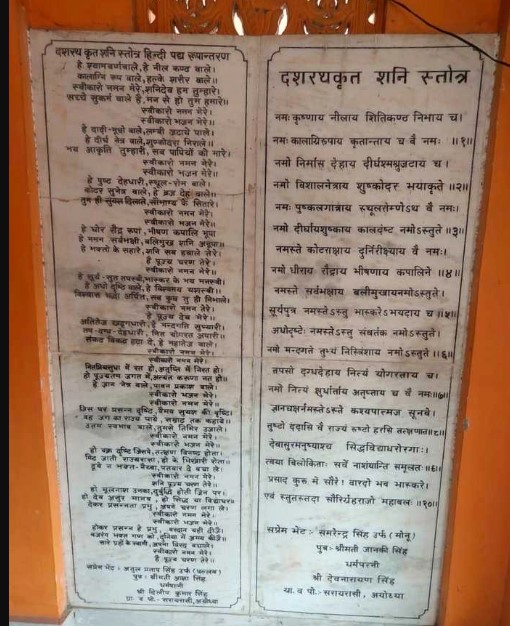 दशरथ कृत शनि स्तोत्र हिन्दी पद्य रूपान्तरण
हे श्यामवर्णवाले, हे नील कण्ठ वाले।
कालाग्नि रूप वाले, हल्के शरीर वाले॥
स्वीकारो नमन मेरे, शनिदेव हम तुम्हारे।
सच्चे सुकर्म वाले हैं, मन से हो तुम हमारे॥
स्वीकारो नमन मेरे।
स्वीकारो भजन मेरे॥
हे दाढ़ी-मूछों वाले, लम्बी जटायें पाले।
हे दीर्घ नेत्र वाले, शुष्कोदरा निराले॥
भय आकृति तुम्हारी, सब पापियों को मारे।
स्वीकारो नमन मेरे।
स्वीकारो भजन मेरे॥
हे पुष्ट देहधारी, स्थूल-रोम वाले।
कोटर सुनेत्र वाले, हे बज्र देह वाले॥
तुम ही सुयश दिलाते, सौभाग्य के सितारे।
स्वीकारो नमन मेरे।
स्वीकारो भजन मेरे॥
हे घोर रौद्र रूपा, भीषण कपालि भूपा
हे नमन सर्वभक्षी, बलिमुख शनि अनूपा॥
हे भक्तों के सहारे, शनि सब हवाले तेरे।
हैं पूज्य चरण तेरे।
स्वीकारो नमन मेरे॥
हे सूर्य-सुत तपस्वी, भास्कर के भय मनस्वी।
हे अधो दृष्टि वाले, हे विश्वमय यशस्वी॥
विश्वास श्रद्धा अर्पित, सब कुछ तू ही निभाले।
स्वीकारो नमन मेरे।
हे पूज्य देव मेरे॥
अतितेज खड्गधारी, हे मन्दगति सुप्यारी।
तप-दग्ध-देहधारी, नित योगरत अपारी॥
संकट विकट हटा दे, हे महातेज वाले।
स्वीकारो नमन मेरे।
स्वीकारो नमन मेरे॥
नितप्रियसुधा में रत हो, अतृप्ति में निरत हो।
हो पूज्यतम जगत में, अत्यंत करुणा नत हो॥
हे ज्ञान नेत्र वाले, पावन प्रकाश वाले।
स्वीकारो भजन मेरे।
स्वीकारो नमन मेरे॥
जिस पर प्रसन्न दृष्टि, वैभव सुयश की वृष्टि।
वह जग का राज्य पाये, सम्राट तक कहाये॥
उत्तम स्वभाव वाले, तुमसे तिमिर उजाले।
स्वीकारो नमन मेरे।
स्वीकारो भजन मेरे॥
हो वक्र दृष्टि जिसपे, तत्क्षण विनष्ट होता।
मिट जाती राज्यसत्ता, हो के भिखारी रोता॥
डूबे न भक्त-नैय्या, पतवार दे बचा ले।
स्वीकारो नमन मेरे।
शनि पूज्य चरण तेरे॥
हो मूलनाश उनका, दुर्बुद्धि होती जिन पर।
हो देव असुर मानव, हो सिद्ध या विद्याधर॥
देकर प्रसन्नता प्रभु, अपने चरण लगा ले।
स्वीकारो नमन मेरे।
स्वीकारो भजन मेरे॥
होकर प्रसन्न हे प्रभु, वरदान यही दीजै।
बजरंग भक्त गण को, दुनिया में अभय कीजै॥
सारे ग्रहों के स्वामी, अपना विरद बचाले।
स्वीकारो नमन मेरे।
हैं पूज्य चरण तेरे॥
सप्रेम भेंट: अतुल प्रताप सिंह उर्फ
पुत्र: श्रीमती आशा सिंह
धर्मपत्नी
श्री दिलीप कुमार सिंह
ग्रा. व पो.- सरायरासी, अयोध्या
दशरथकृत शनि स्तोत्र
नमः कृष्णाय नीलाय शितिकण्ठ निभाय च।
नमः कालाग्निरुपाय कृतान्ताय च वै नमः ॥१॥
नमो निर्मास देहाय दीर्घश्मश्रुजटाय च।
नमो विशालनेत्राय शुष्कोदर भयाकृते ॥२॥
नमः पुष्कलगात्राय स्थूलरोम्णेऽथ वै नमः।
नमो दीर्घायशुष्काय कालदंष्ट नमोऽस्तुते॥३॥
नमस्ते कोटराक्षाय दुर्निरीक्ष्याय वै नमः।
नमो घोराय रौद्राय भीषणाय कपालिने ॥४॥
नमस्ते सर्वभक्षाय बलीमुखायनमोऽस्तुते।
सूर्यपुत्र नमस्तेऽस्तु भास्करेऽभयदाय च॥५॥
अधोदृष्टेः नमस्तेऽस्तु संवर्तक नमोऽस्तुते।
नमो मन्दगते तुभ्यं निस्त्रिंशाय नमोऽस्तुते।।६॥
तपसा दग्धदेहाय नित्यं योगरताय च।
नमो नित्यं क्षुधार्ताय अतृप्ताय च वै नमः॥७॥
ज्ञानचक्षर्नमस्तेऽस्तु कश्यपात्मज सूनवे।
तुष्टो ददासि वै राज्यं रुष्टो हरसि तत्क्षणात॥८॥
देवासुरमनुष्याश्च सिद्धविद्याधरोरगाः।
त्वया विलोकिताः सर्वे नाशंयान्ति समूलतः॥९॥
प्रसाद कुरू मे सौरे! वारदो भव भास्करे।
एवं स्तुतस्तदा सौरिर्ग्रहराजो महाबलः॥१०॥
सप्रेम भेंट:- समरेन्द्र सिंह उर्फ (मोनू)
पुत्र:- श्रीमती जानकी सिंह
धर्मपत्नी
श्री देवनारायण सिंह
ग्रा. व पो:- सरायरासी, अयोध्या